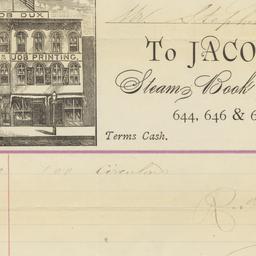 OB DUX
& JOB PRINTING.
To JACO
Steam Book
644, 646 & 6
Terms Cash.
100 Circulars